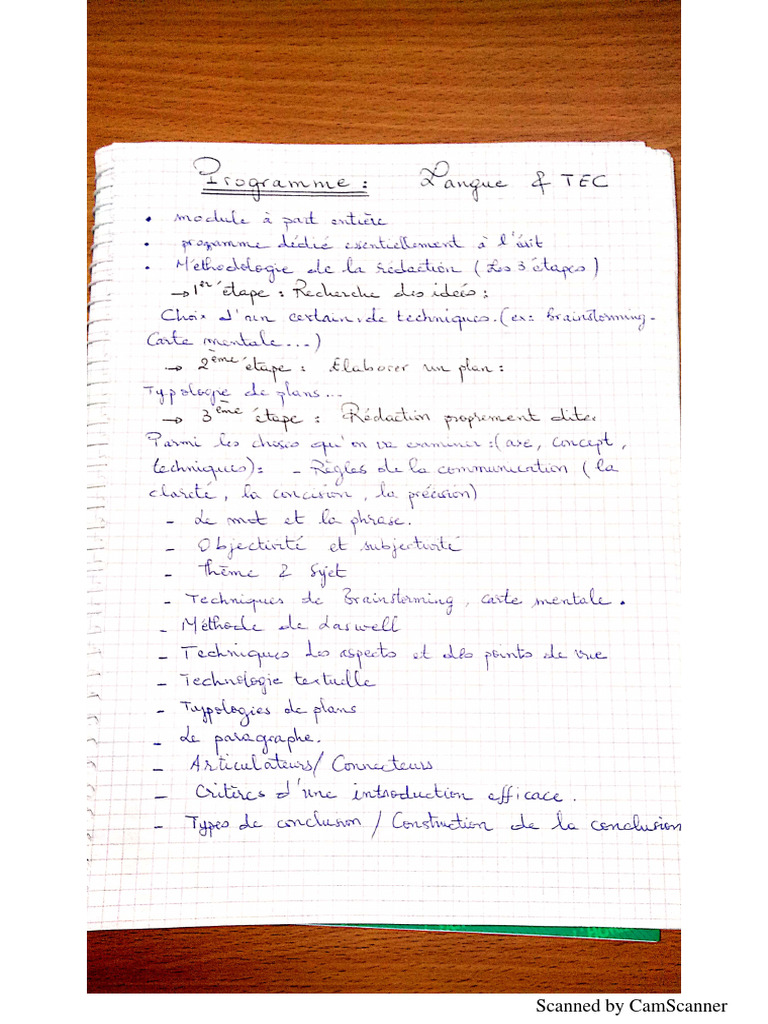 Programme : Langue & TEC
• module à part entière
• programme dédié essentiellement à l'écrit
• Méthodologie de la rédaction (Les 3 étapes)
→ 1ère étape : Recherche des idées :
Choix d'un certain de techniques. (ex: Brainstorming -
Carte mentale ...)
→ 2ème étape : Elaborer un plan :
Typologie de plans ...
→ 3ème étape : Rédaction proprement dite.
Parmi les choses qu'on va examiner : (axe, concept,
techniques) : - Règles de la communication (la
clareté, la concision, la précision)
- Le mot et la phrase.
- Objectivité et subjectivité
- Thème & Sujet
- Techniques de Brainstorming, carte mentale.
- Méthode de Laswell
- Techniques des aspects et des points de vue
- Technologie textuelle
- Typologies de plans
- Le paragraphe.
- Articulateurs / Connecteurs
- Critères d'une introduction efficace.
- Types de conclusion / Construction de la conclusion
Scanned by CamScanner